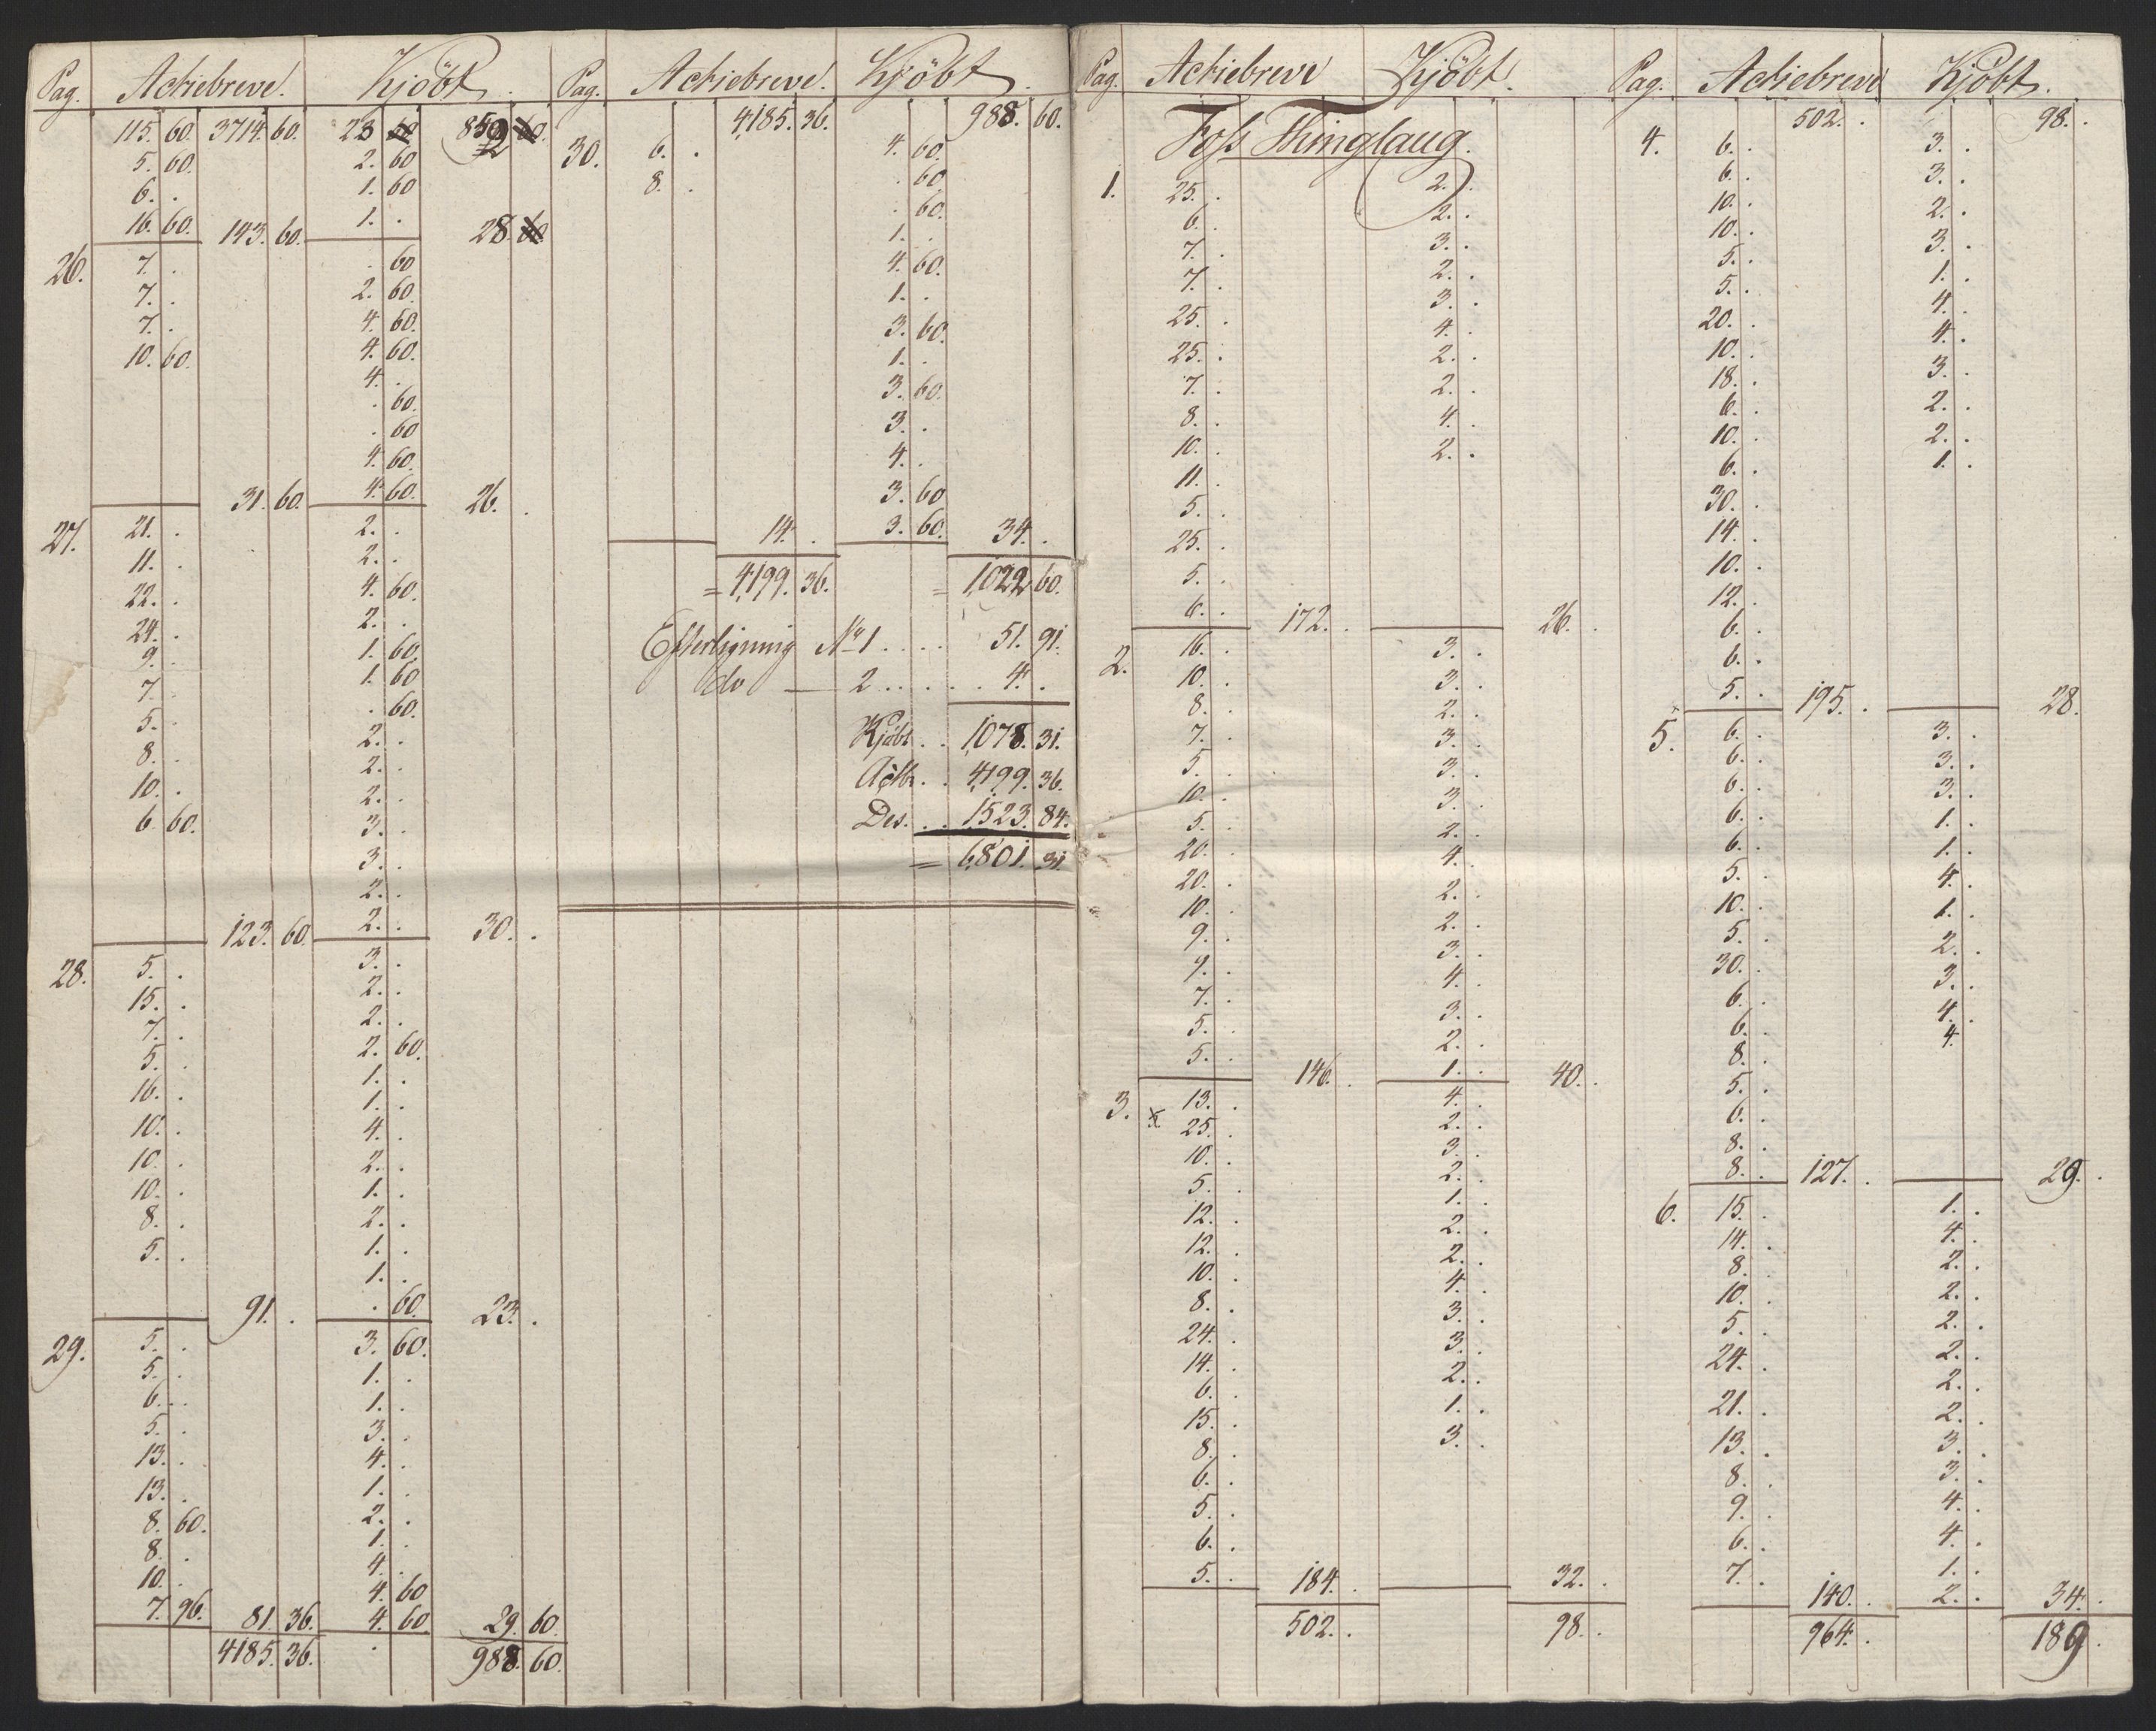 Pag. Actiebreve. Kjöbt.
115. 60. 3714. 60. 23 852
5. 60. 2. 60
6. . 1. 60
16. 60. 143. 60. 1. . 28.
26. 7. . . 60
7. . 2. 60.
7. . 4. 60.
10. 60. 4. 60.
4. .
. 60.
. 60
4. 60.
31. 60. 4. 60. 26. .
27. 21. . 2. .
11. . 2. .
22. . 4. 60.
24. . 2. .
9. . 1. 60.
7. . 1. 60
5. . . 60.
8. . 2. .
10. . 2. .
6 60. 2. .
3. .
3. .
2. .
123. 60. 2. . 30. .
28. 5. . 3. .
15. . 2. .
7. . 2. .
5. . 2. 60.
16. . 1. .
10. . 1. .
10. . 4. .
10. . 2. .
8. . 1. .
5. . 2. .
1. .
1. .
91. . . 60. 23. .
29. 5. . 3. 60.
5. . 1. .
6. . 1. .
5. . 3. .
13. . 4. .
13. . 1. .
8. 60. 2. .
8. . 1. .
10. . 4. .
7. 96. 4. 60
81. 36. 4. 60 29. 60.
4185. 36. 988. 60.
Pag. Actiebreve. Kjöbt.
4,185. 36. 988. 60.
30. 6. . 4. 60.
8. . . 60
. 60.
1. .
4. 60.
1. .
3. 60.
1. .
3. 60.
3. .
4. .
3. 60
14. . 3. 60. 34. .
= 4,199. 36. = 1,022 60.
Efterligning No 1 . . . . 51. 91.
do — 2 . . . . . 4. .
Kjöbt . . 1,078. 31.
Actbr. . 4,199. 36.
Des. . . 1,523. 84.
= 6,801. 31.
Pag. Actiebreve Kjöbt.
Foss Thinglaug.
1. 25. . 2. .
6. . 2. .
7. . 3. .
7. . 2. .
25. . 3. .
25. . 4. .
7. . 2. .
8. . 2. .
10. . 4. .
11. . 2. .
5. .
25. .
5. .
6. . 172. . 26. .
2. 16. . 3. .
10. . 3. .
8. . 2. .
7. . 3. .
5. . 3. .
10. . 3. .
5. . 2. .
20. . 4. .
20. . 2. .
10. . 2. .
9. . 3. .
9. . 4. .
7. . 3. .
5. . 2. .
5. . 146. . 1. . 40. .
3. 13. . 4. .
25. . 2. .
10. . 3. .
5. . 2. .
12. . 1. .
12. . 2. .
10. . 2. .
8. . 4. .
24. . 3. .
14. . 3. .
6. . 2. .
15. . 1. .
8. . 3. .
6. .
5. .
6. .
5. . 184. . 32. .
502. . 98. .
Pag. Actiebreve Kjöbt.
502. . 98. .
4. 6. . 3. .
6. . 3. .
10. . 2. .
10. . 3. .
5. . 1. .
5. . 4. .
20. . 4. .
10. . 3. .
18. . 2. .
6. . 2. .
10. . 1. .
6. .
30. .
14. .
10. .
12. .
6. .
6. .
5. . 195. . 28.
5. 6. . 3. .
6. . 3. .
6. . 3. .
6. . 1. .
6. . 1. .
5. . 4. .
10. . 1. .
5. . 2. .
30. . 3. .
6. . 4. .
6. . 4.
8. .
5. .
6. .
8. .
8. . 127. . 29. .
6. 15. . 1. .
14. . 4. .
8. . 2. .
10. . 2. .
5. . 2. .
24. . 2. .
21. . 2. .
13. . 2. .
8. . 3. .
9. . 3. .
6. . 4. .
7. . 4. .
1. .
140. . 2. . 34. .
964. . 189 .